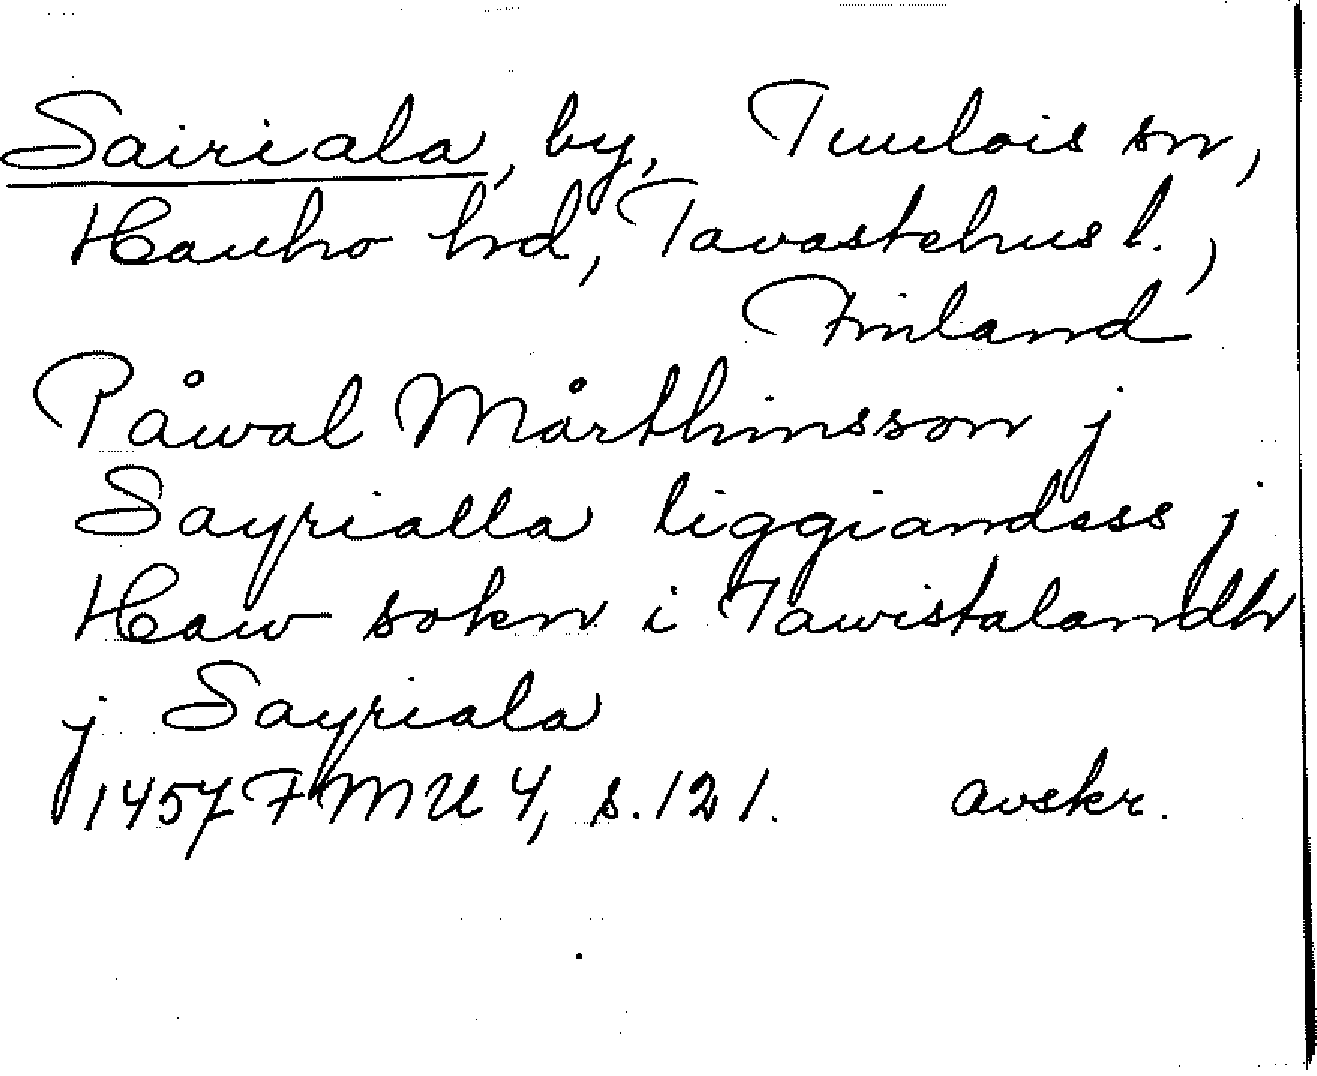 Sairiala, by, Tuulois sn,
Hauho hrd, Tavastehus l.,
Finland
Påwal Mårthinsson j
Sayrialla liggiandess j
Haw sokn i Tawistalandh
j Sayriala
1457 FMU 4, s. 121. avskr.